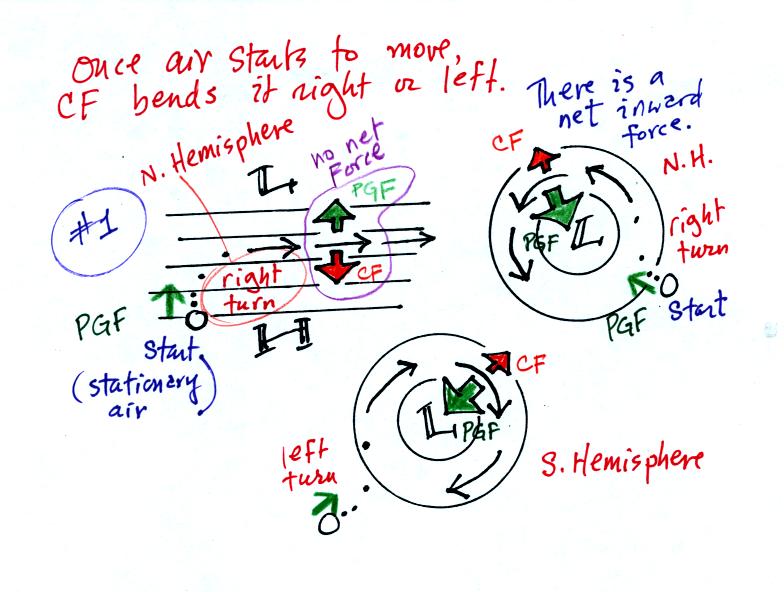 Once air starts to move,
CF bends it right or left.
There is a
net inward
force.
N. Hemisphere
no net
Force
L
PGF
#1
right
turn
CF
PGF
H
Start
(stationary
air
CF
N.H.
right
turn
PGF
L
PGF
Start
CF
L
PGF
left
turn
S. Hemisphere